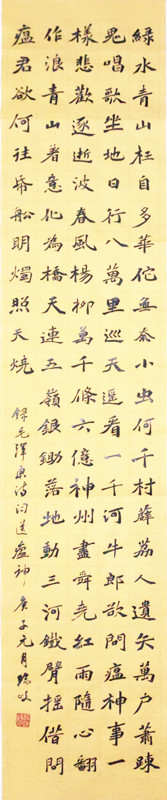 綠水青山枉自多華佗無奈小虫何千村薜荔人遺矢萬戶蕭踈
鬼唱歌坐地日行八萬里巡天遥看一千河牛郎欲問瘟神事一
樣悲歡逐逝波春風楊柳萬千條六億神州盡舜堯紅雨隨心翻
作浪青山着意化為橋天連五嶺銀鋤落地動三河鐵臂摇借問
瘟君欲何往帋船明燭照天燒
錄毛澤東詩詞送瘟神庚子元月